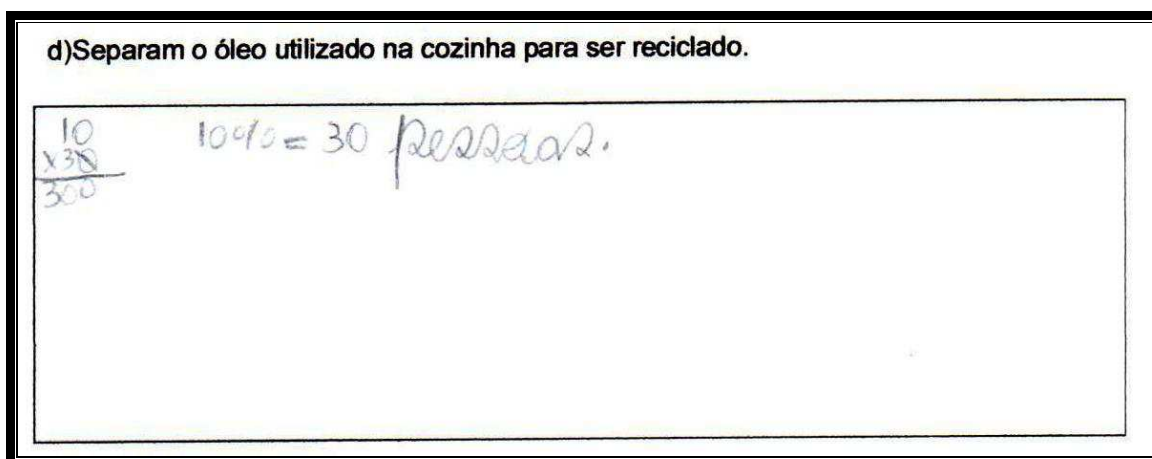 d)Separam o óleo utilizado na cozinha para ser reciclado.
10
x30
300
10% = 30 pessoas.